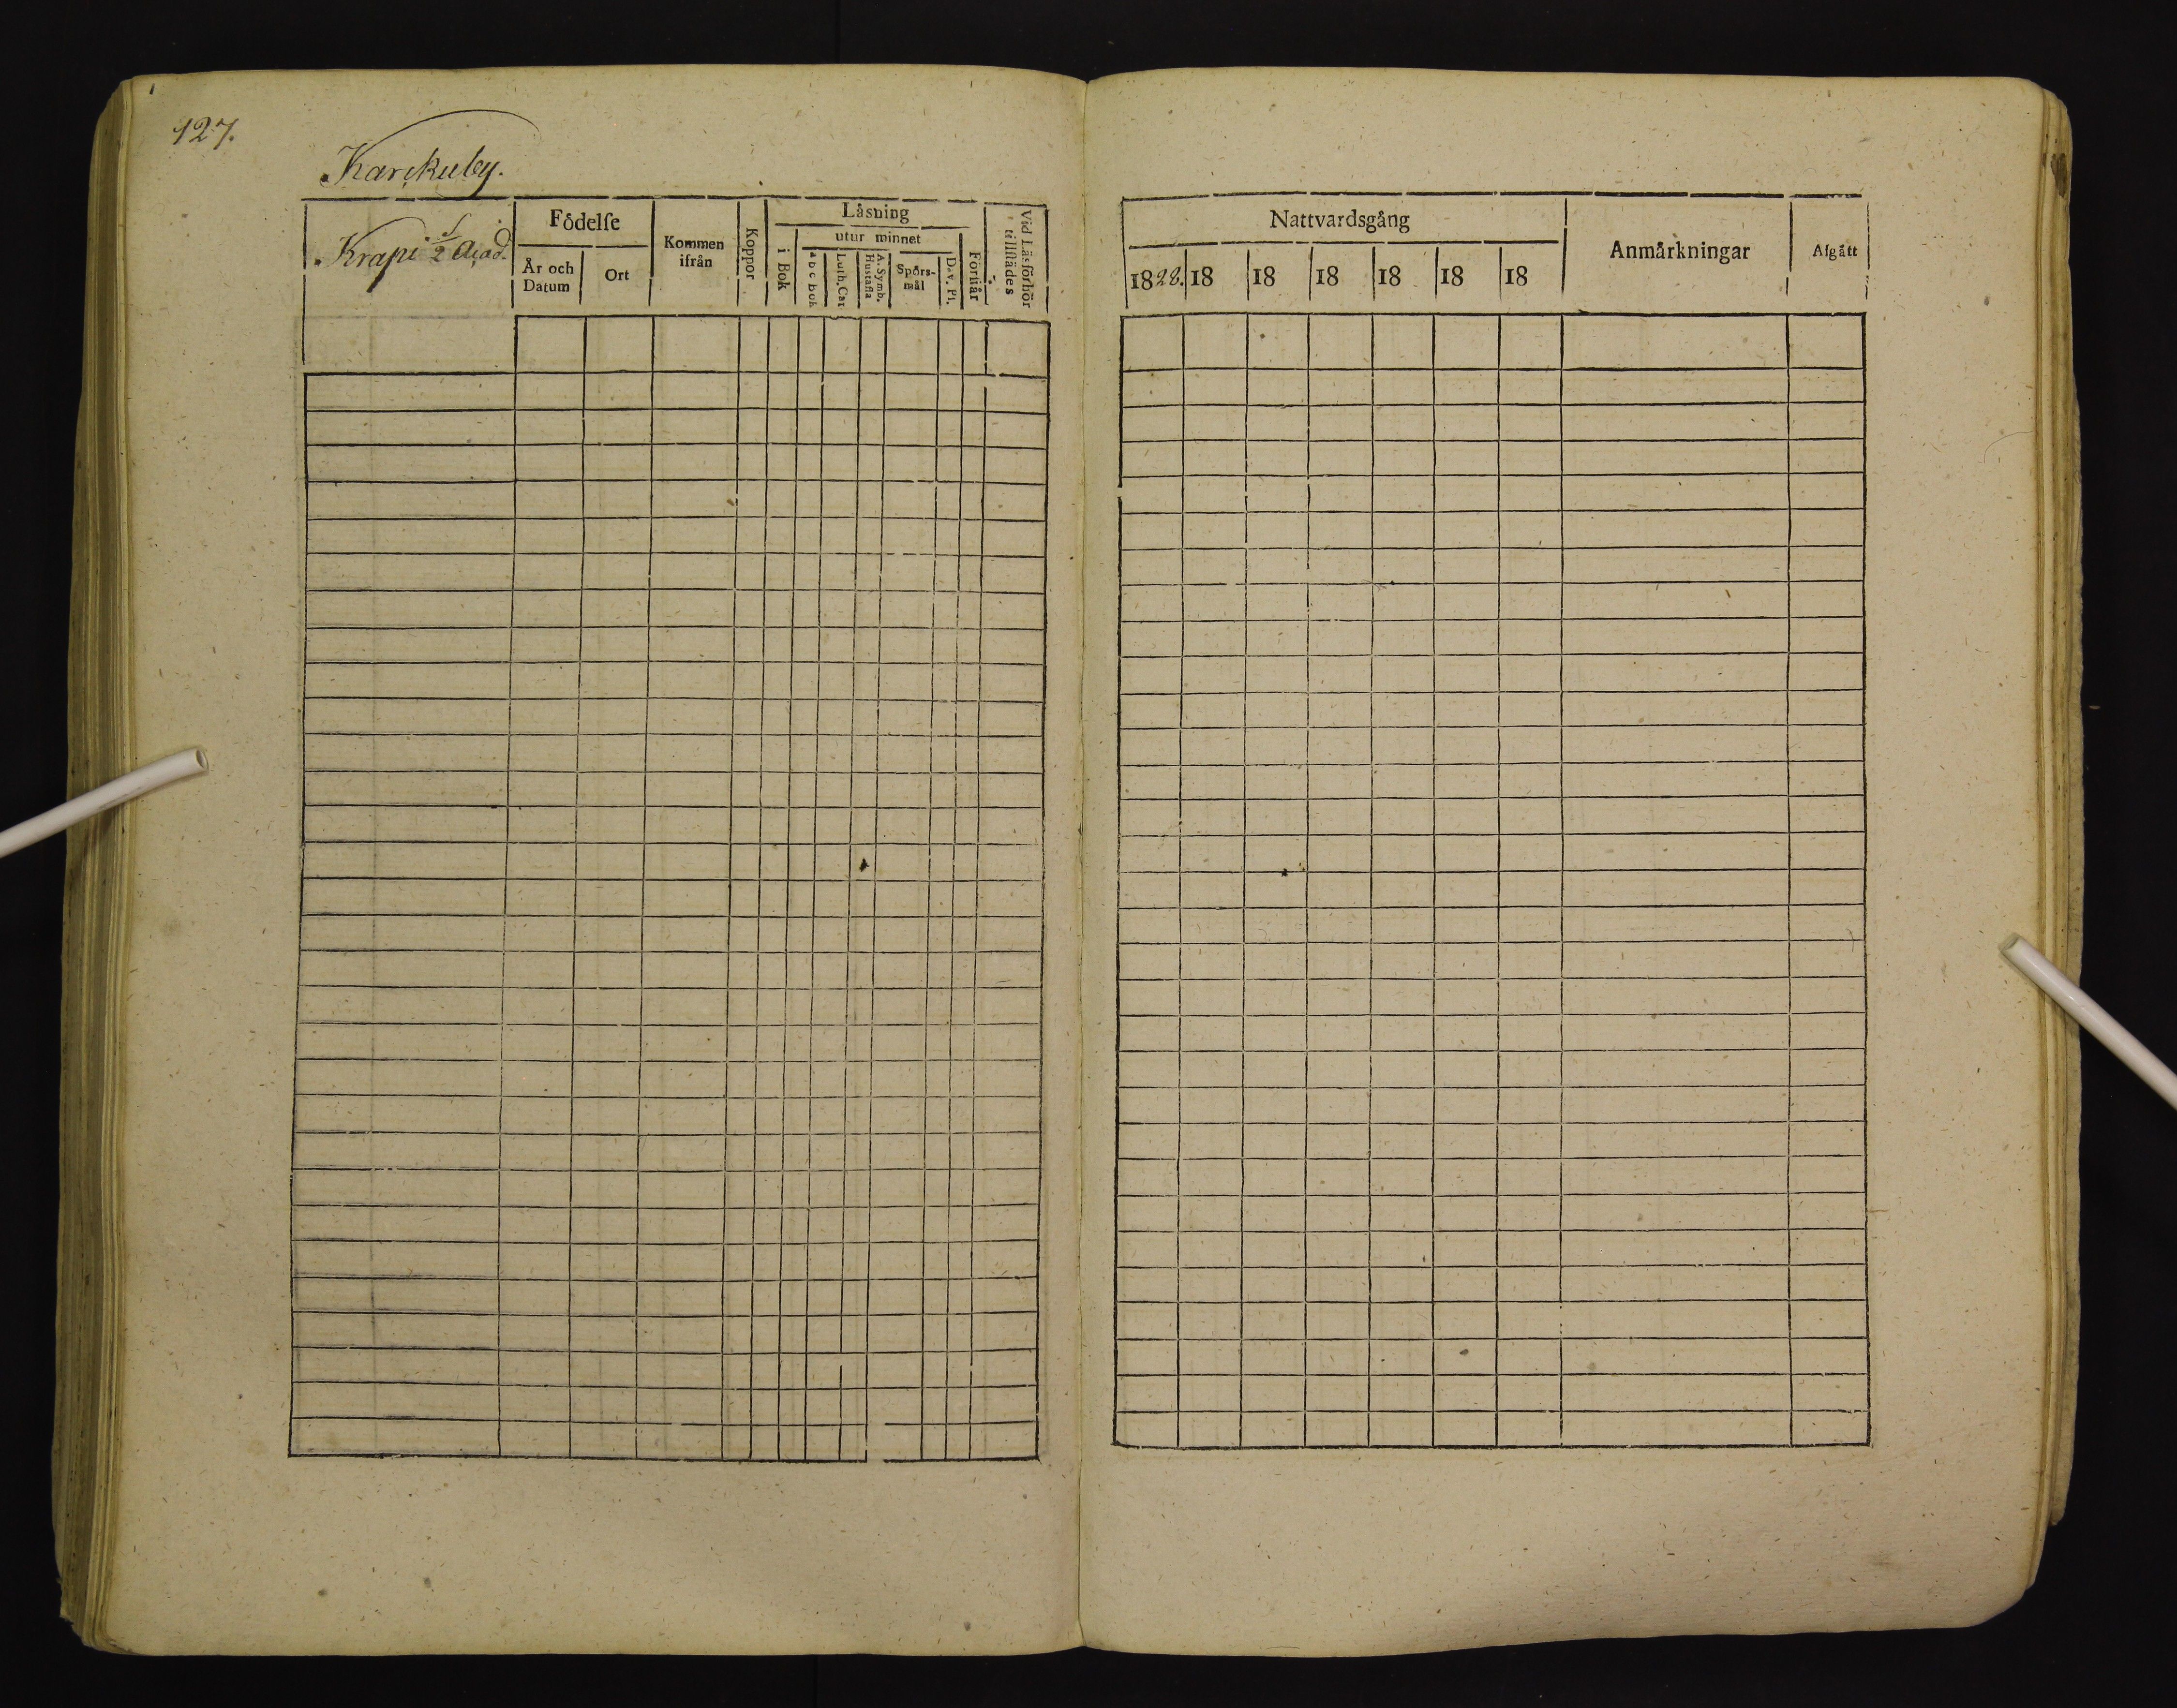 127.
Karskuby.
Krapi 1/2 Acad.
Födelſe
År och Datum
Ort
Kommen ifrån
Koppor
Läsning
i Bok
utur minnet
a b c bok
Luth. Cat
A. Symb. Hustafla
Spörs-mål
Dav. Pſ.
Förſtår
Vid Läsförhör tillſtädes
Nattvardsgång
1828. 18 18 18 18 18 18
Anmärkningar
Afgått